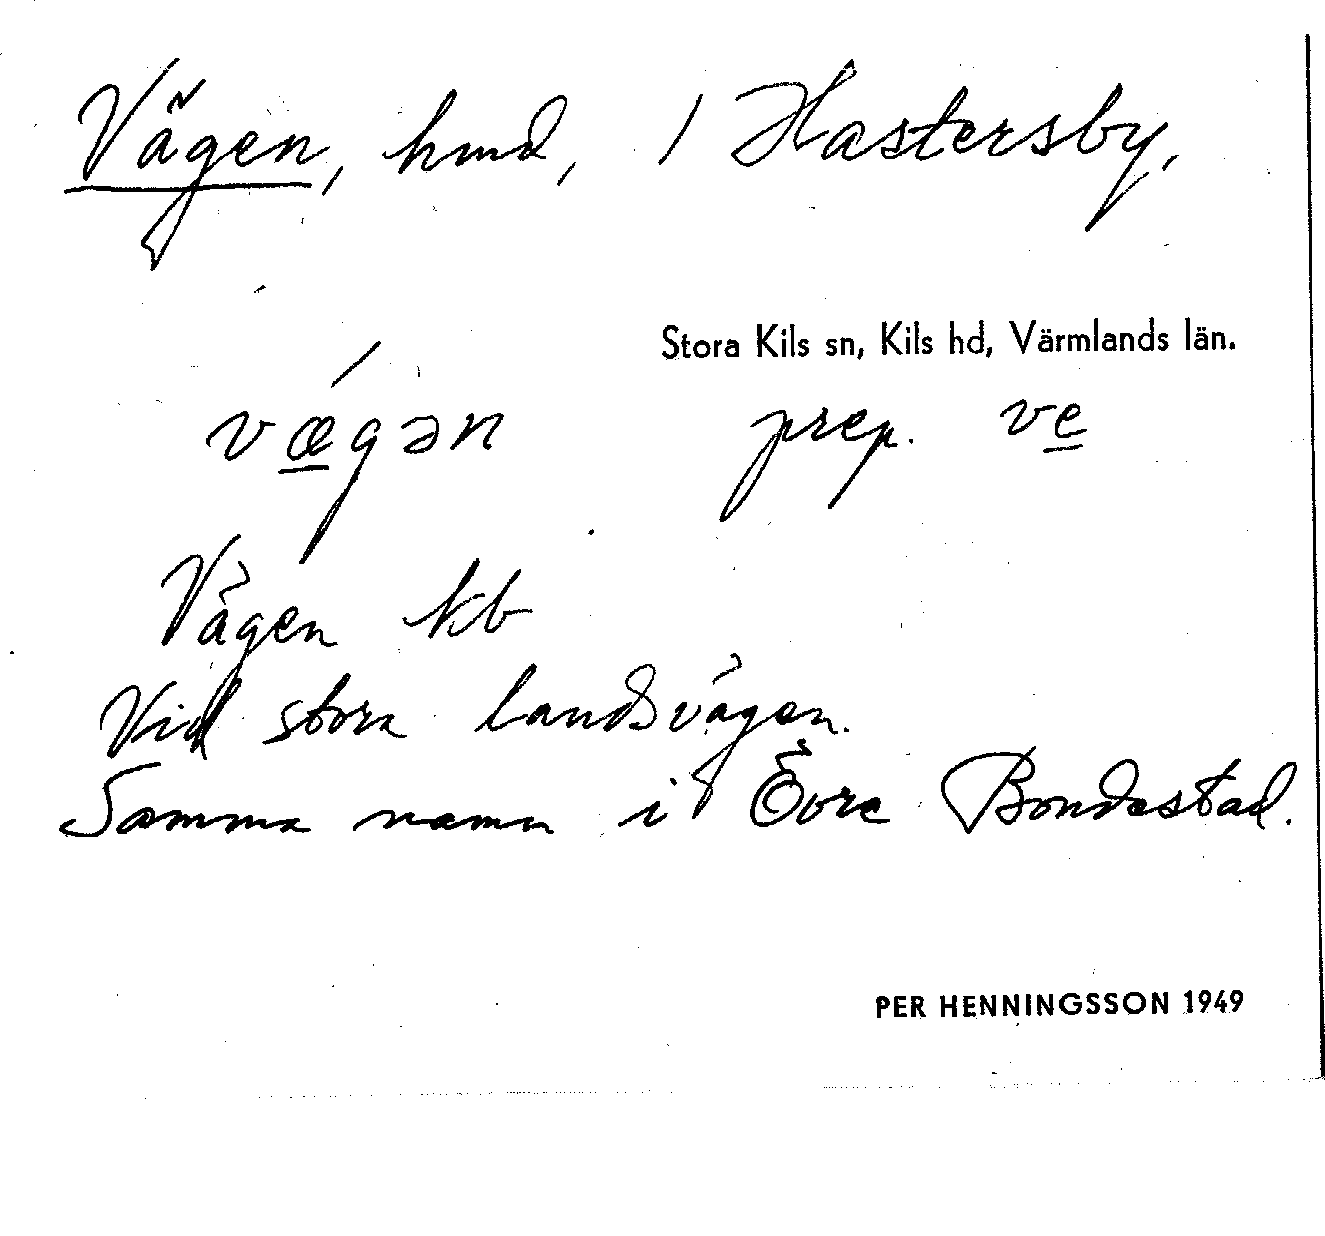 Vägen, hmd, 1 Hastersby,
Stora Kils sn, Kils hd, Värmlands län.
vǽ̲gən prep. ve̲
Vägen kb
Vid stora landsvägen.
Samma namn i Övre Bondestad.
PER HENNINGSSON 1949